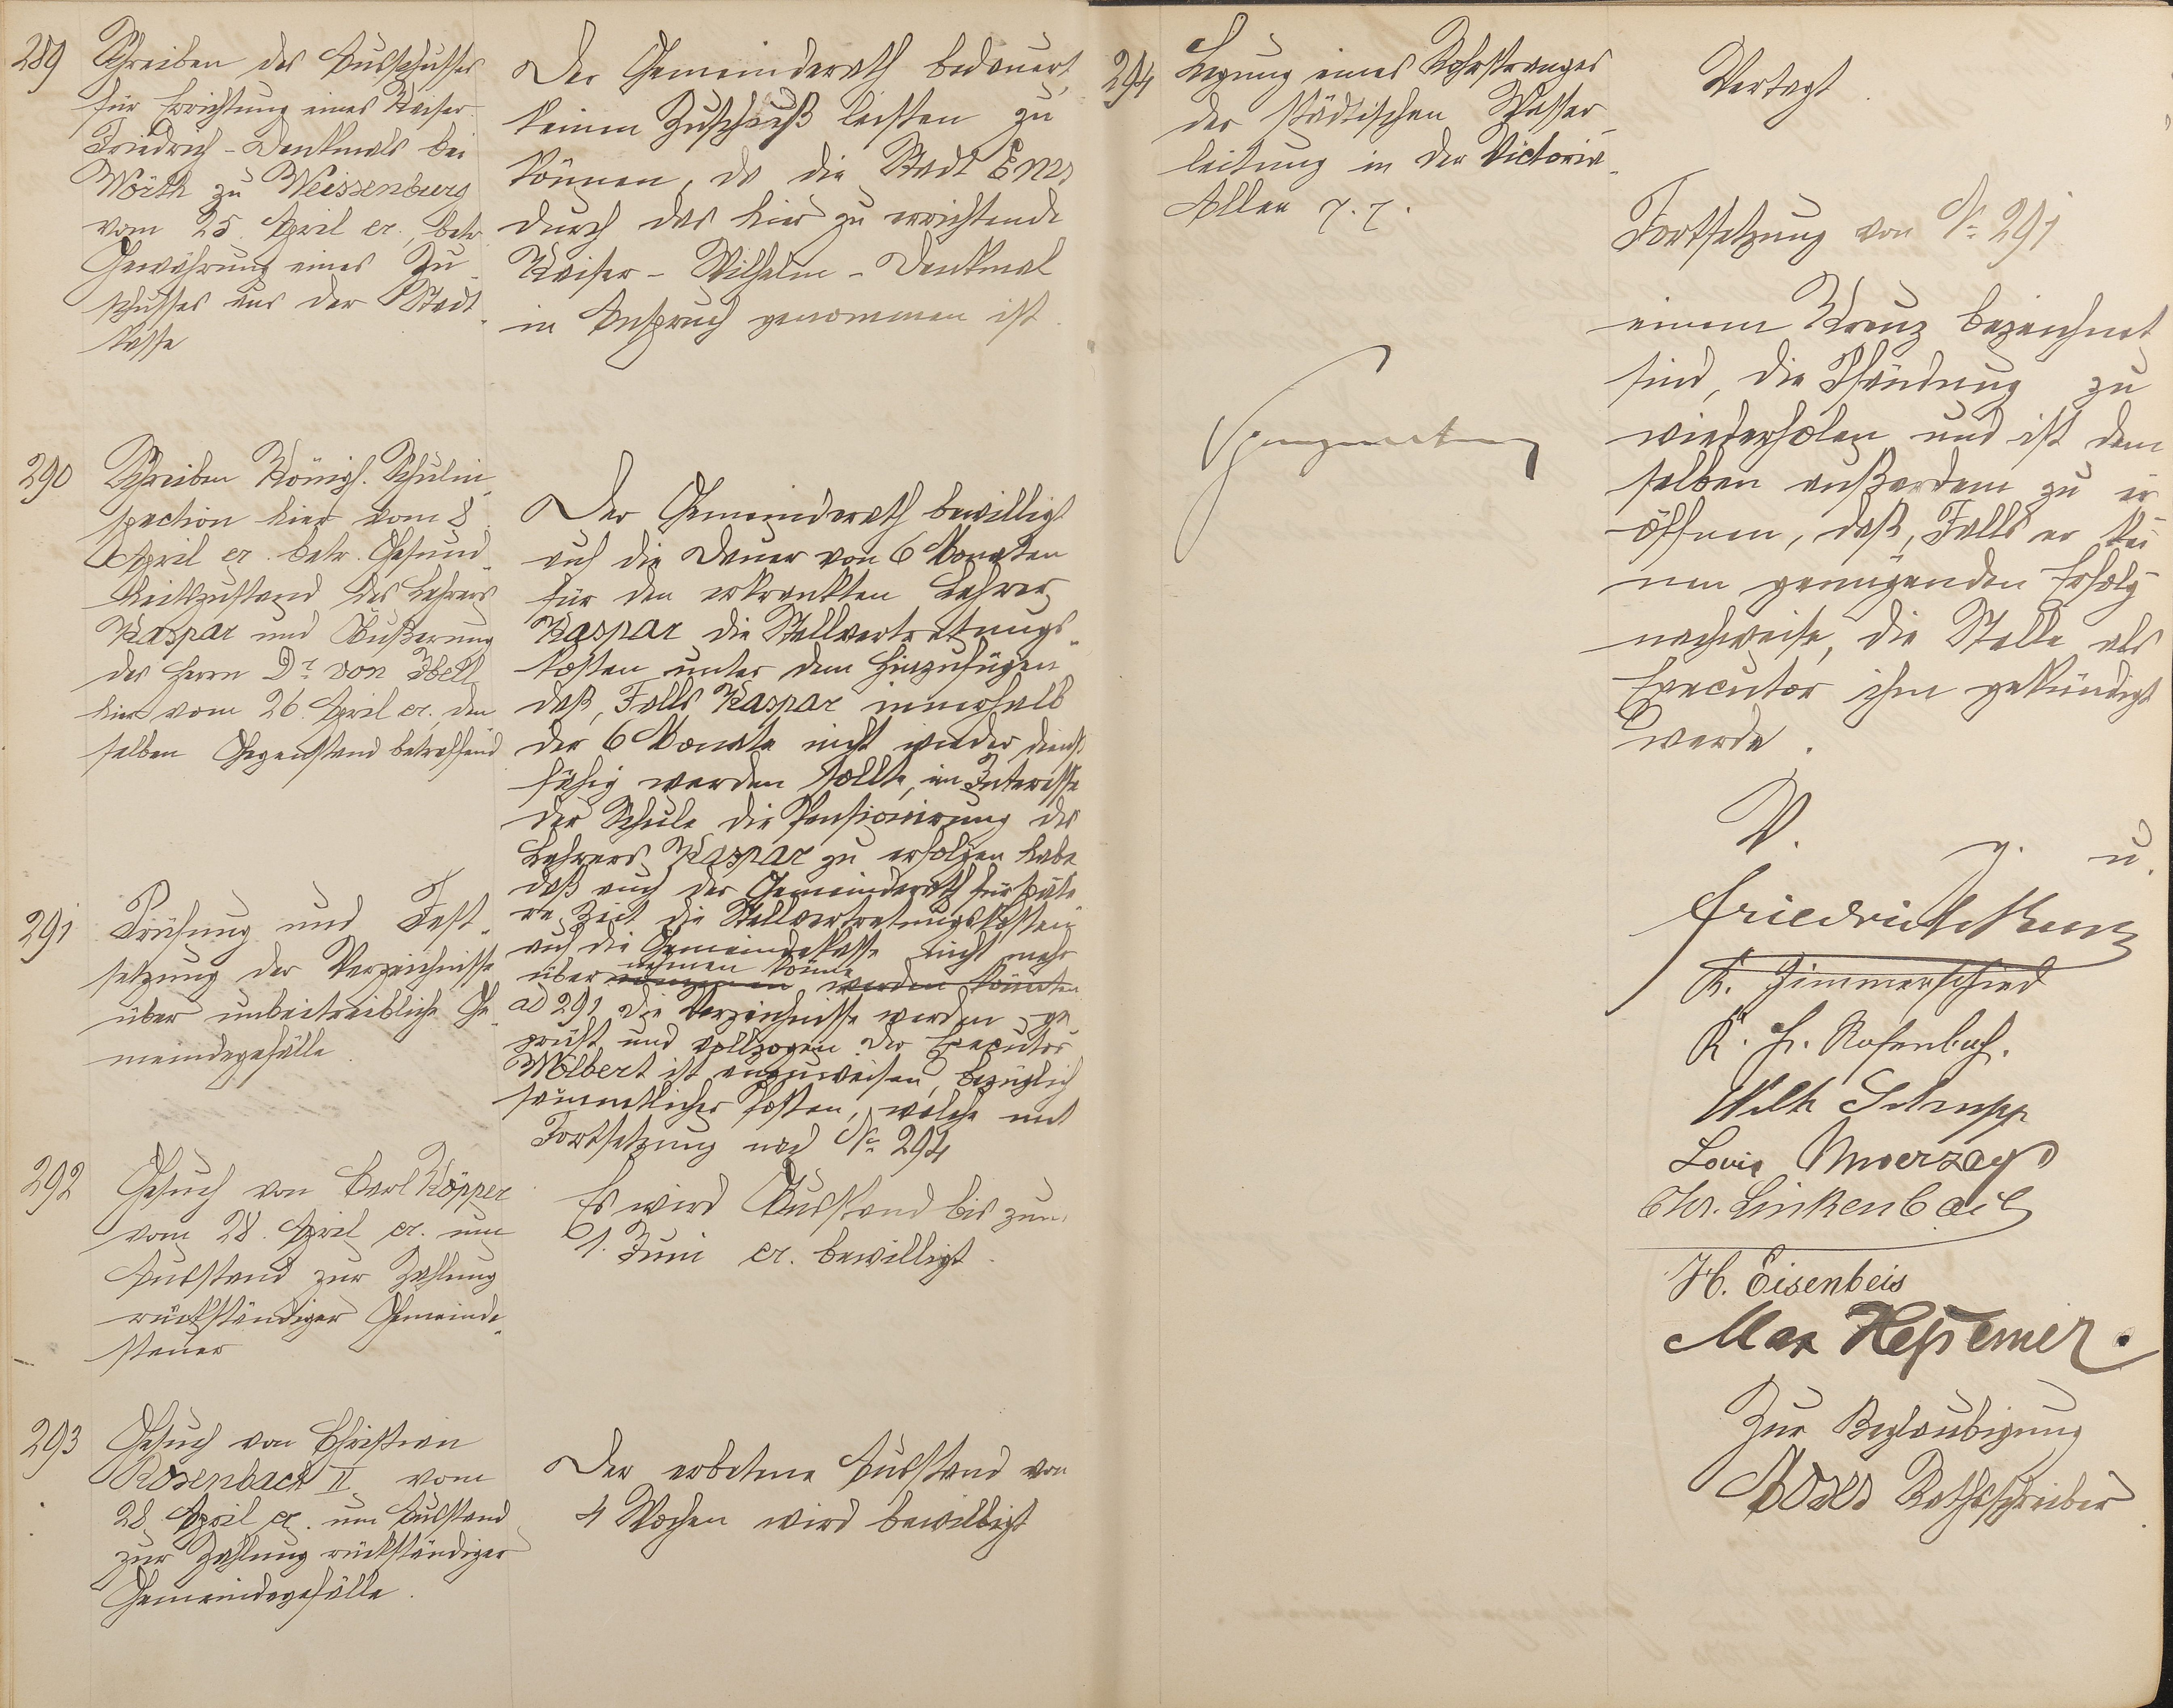 289
Schreiben des Ausschusses
für Errichtung eines Kaiser-
Friedrich-Denkmals bei
Wörth zu Weissenburg
vom 25. April cr., betr.
Gewährung eines Zu-
schusses aus der Stadt-
kasse
Der Gemeinderath bedauert,
keinen Zuschuß leisten zu
können, da die Stadt Ems
durch das hier zu errichtende
Kaiser-Wilhelm-Denkmal
in Anspruch genommen ist.
290
Schreiben Königl. Schulin-
spection hier vom 8.
April cr. betr. Gesund-
heitszustand des Lehrers
Kaspar und Äußerung
des Herrn Dr. von Ibell
hier vom 26. April cr., den
selben Gegenstand betreffend
Der Gemeinderath bewilligt
auf die Dauer von 6 Monaten
für den erkrankten Lehrer
Kaspar die Stellvertretungs-
kosten unter dem Hinzufügen
daß, Falls Kaspar innerhalb
der 6 Monate nicht wieder dienst
fähig werden sollte, im Interesse
der Schule die Pensionirung des
Lehrers Kaspar zu erfolgen habe
daß auch der Gemeinderath für späte
re Zeit die Stellvertretungskosten
auf die Gemeindekasse nicht mehr
über nehmen könne werden könnten
291
Prüfung und Fest-
setzung der Verzeichnisse
über unbeitreibliche Ge-
meindegefälle.
ad 291 Die Verzeichnisse werden ge-
prüft und vollzogen. Der Executor
Wölbert ist anzuweisen, bezüglich
sämmtlicher Posten, welche mit
Fortsetzung nach No 294
292
Gesuch von Carl Köpper
vom 28. April cr. um
Ausstand zur Zahlung
rückständiger Gemeinde-
steuer
Es wird Ausstand bis zum
1. Juni cr. bewilligt.
293
Gesuch von Christian
Rosenbach II. vom
28. April cr. um Ausstand
zur Zahlung rückständiger
Gemeindegefälle.
Der erbetene Ausstand von
4 Wochen wird bewilligt
294
Legung eines Rohrstranges
der städtischen Wasser-
leitung in der Victoria-
Allee
Vertagt.
Fortsetzung von No 291
einem Kreuz bezeichnet
sind, die Pfändung zu
wiederholen und ist dem
selben außerdem zu er
öffnen, daß, Falls er kei
nen genügenden Erfolg
nachweise, die Stelle als
Executor ihm gekündigt
werde.
V. g. u.
K. Zimmerschied
K. Fr. Rosenbach.
Wilh Schupp
Louis
Chr. Linkenbach
H. Eisenbeis
Max Heßemer.
Zur Beglaubigung
Moses Rathsschreiber